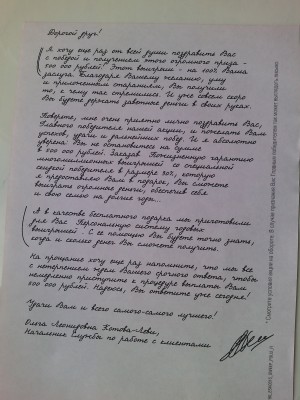 Дорогой друг!
Я хочу еще раз от всей души поздравить Вас
с победой и получением этого огромного приза -
800 000 рублей! Этот выигрыш - на 100% Ваша
заслуга. Благодаря Вашему желанию, уму
и приложенным стараниям, Вы получили
то, к чему так стремились. И уже совсем скоро
Вы будете держать заветные деньги в своих руках.
Поверьте, мне очень приятно лично поздравить Вас,
Главного победителя нашей акции, и пожелать Вам
успехов, удачи и дальнейших побед. И я абсолютно
уверена: Вы не остановитесь на сумме
в 800 000 рублей. Заказав Пожизненную гарантию
многомиллионных выигрышей со специальной
скидкой победителя в размере 30%, которую
я предоставляю Вам в подарок, Вы сможете
выиграть огромные деньги, обеспечив себя
и свою семью на долгие годы...
А в качестве бесплатного подарка мы приготовили
для Вас Персональную систему годовых
выигрышей. С ее помощью Вы будете точно знать,
когда и сколько денег Вы сможете получить.
На прощание хочу еще раз напомнить, что мы все
с нетерпением ждем Вашего срочного ответа, чтобы
немедленно приступить к процедуре выплаты Вам
800 000 рублей. Надеюсь, Вы ответите уже сегодня!
Удачи Вам и всего самого-самого лучшего!
Ольга Леонидовна Котова-Леви,
Начальник Службы по работе с клиентами
* Смотрите условия акции на обороте. В случае признания Вас Главным победителем